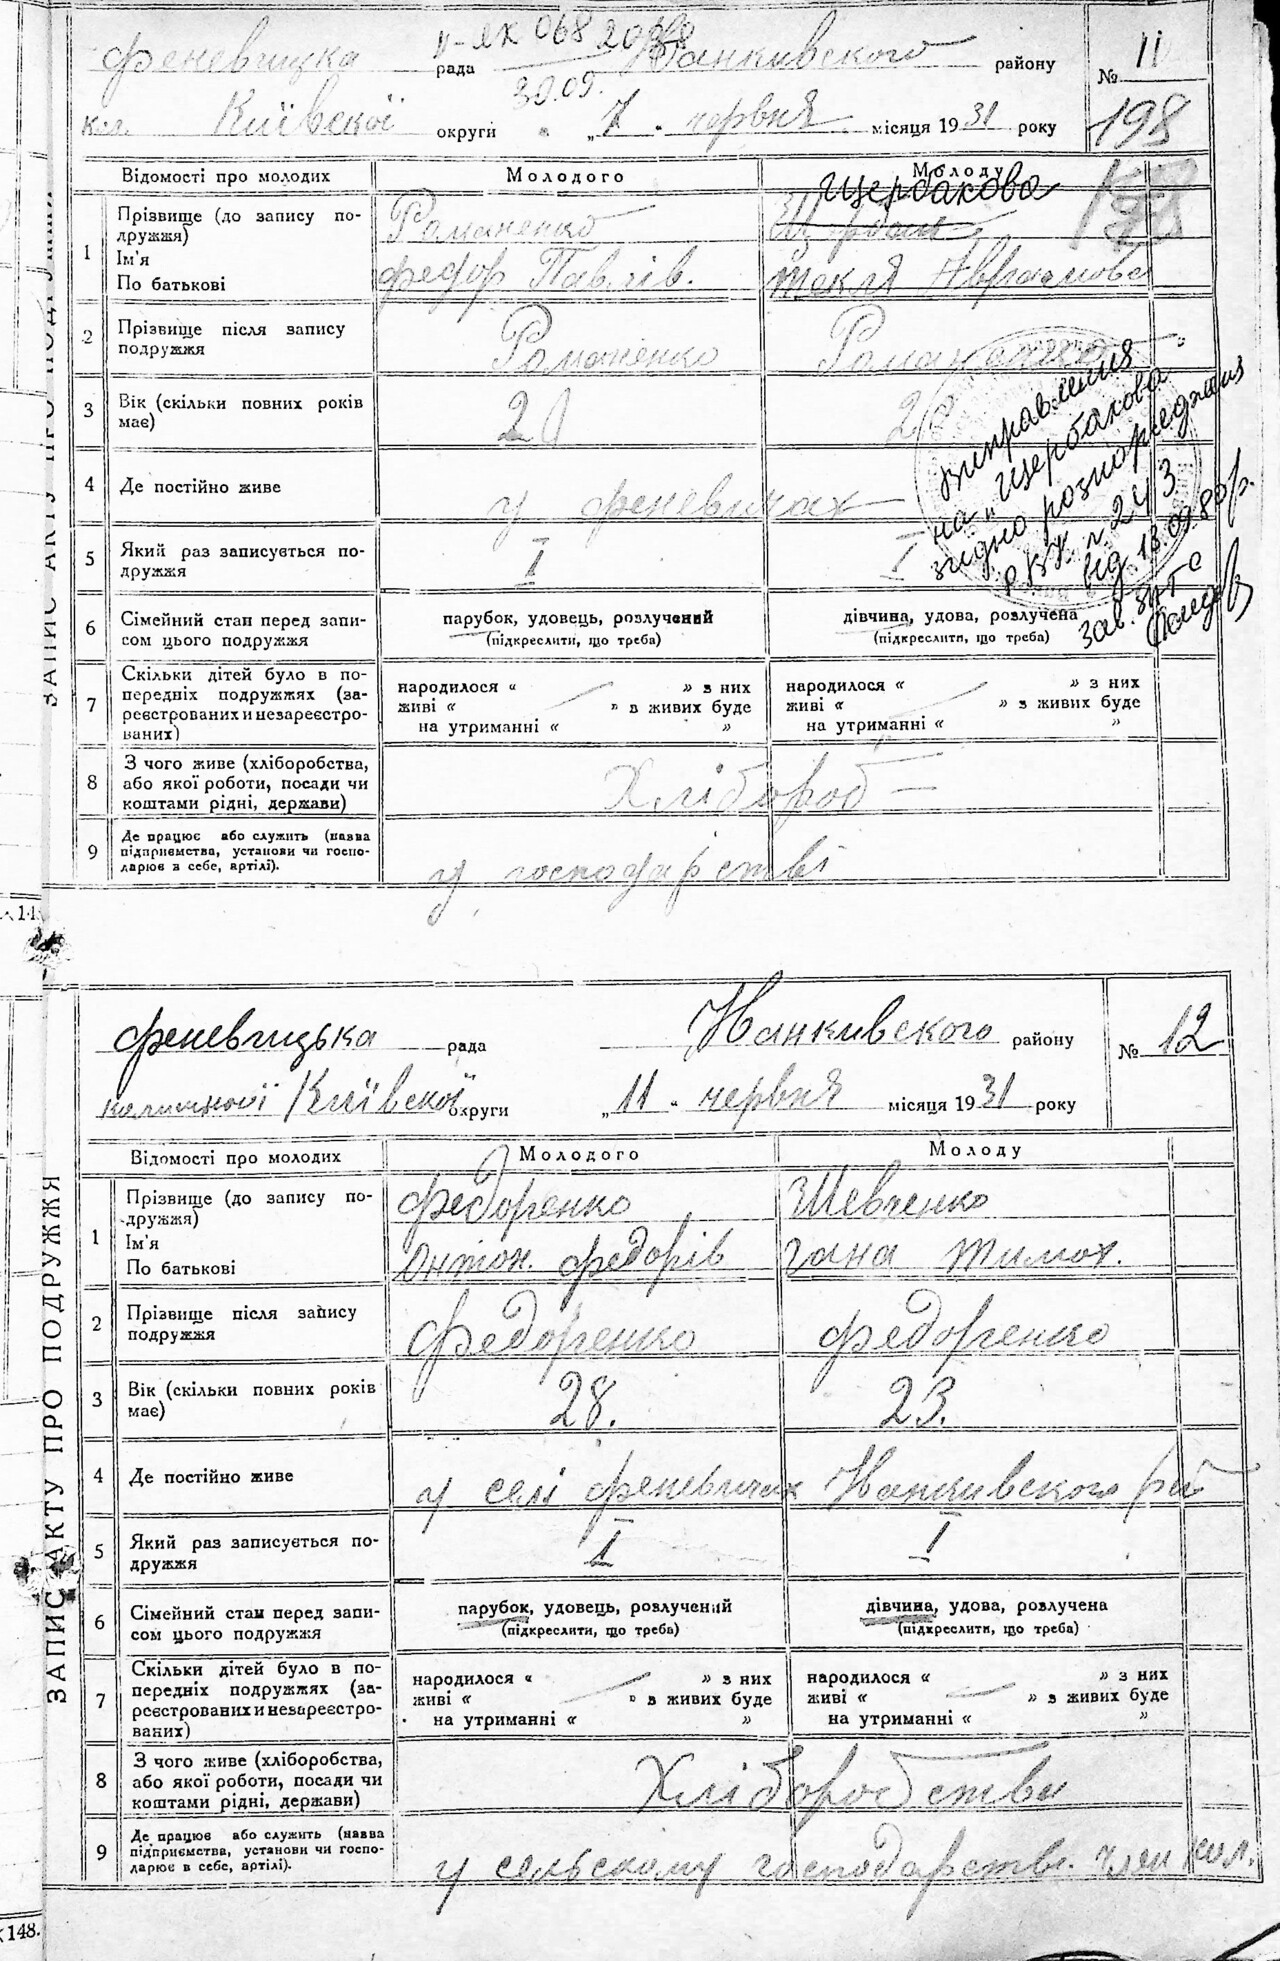 ІІ-ЯК 068209
30.09.
Феневицка рада Іванкивского району № 11
кол. Київскої округи „7" червня місяця 1931 року 198
ЗАПИС АКТУ ПРО ПОДРУЖЖЯ
Відомості про молодих Молодого Молоду
Щербакова
1 Прізвище (до запису подружжя) Романенко
Ім'я
По батькові Федор Павлів. Текля Аврамова
2 Прізвище після запису Романенко Романенко
подружжя
3 Вік (скільки повних років
має)
4 Де постійно живе у Феневичах
5 Який раз записується по- I I
дружжя
6 Сімейний стан перед запи- парубок, удовець, розлучений дівчина, удова, розлучена
сом цього подружжя (підкреслити, що треба) (підкреслити, що треба)
Виправлення
на „Щербакова
згідно розпорядження
РВК № 243
від 18.09.80р.
зав. ЗАГС
7 Скільки дітей було в по- народилося « » з них народилося « » з них
передніх подружжях (за- живі « » в живих буде живі « » з живих буде
реєстрованих и незареєстро- на утриманні « » на утриманні « »
ваних)
8 З чого живе (хліборобства, Хлібороб
або якої роботи, посади чи
коштами рідні, держави)
9 Де працює або служить (назва
підприємства, установи чи госпо-
дарює в себе, артілі). у господарстві
Феневицька рада Іванкивского району № 12
Київскої округи „11" червня місяця 1931 року
ЗАПИС АКТУ ПРО ПОДРУЖЖЯ
Відомості про молодих Молодого Молоду
1 Прізвище (до запису по- Федоренко Шевченко
дружжя)
Ім'я Антон. Федорів Гана Тимох.
По батькові
2 Прізвище після запису Федоренко Федоренко
подружжя
3 Вік (скільки повних років 28. 23.
має)
4 Де постійно живе у селі Феневичах Іванкивского рай
5 Який раз записується по- I I
дружжя
6 Сімейний стан перед запи- парубок, удовець, розлучений дівчина, удова, розлучена
сом цього подружжя (підкреслити, що треба) (підкреслити, що треба)
7 Скільки дітей було в по- народилося « » з них народилося « » з них
передніх подружжях (за- живі « » в живих буде живі « » з живих буде
реєстрованих и незареєстро- на утриманні « » на утриманні « »
ваних)
8 З чого живе (хліборобства, Хліборобстви
або якої роботи, посади чи
коштами рідні, держави)
9 Де працює або служить (назва
підприємства, установи чи госпо-
дарює в себе, артілі). у сельскому господарстві. член кол.
148.